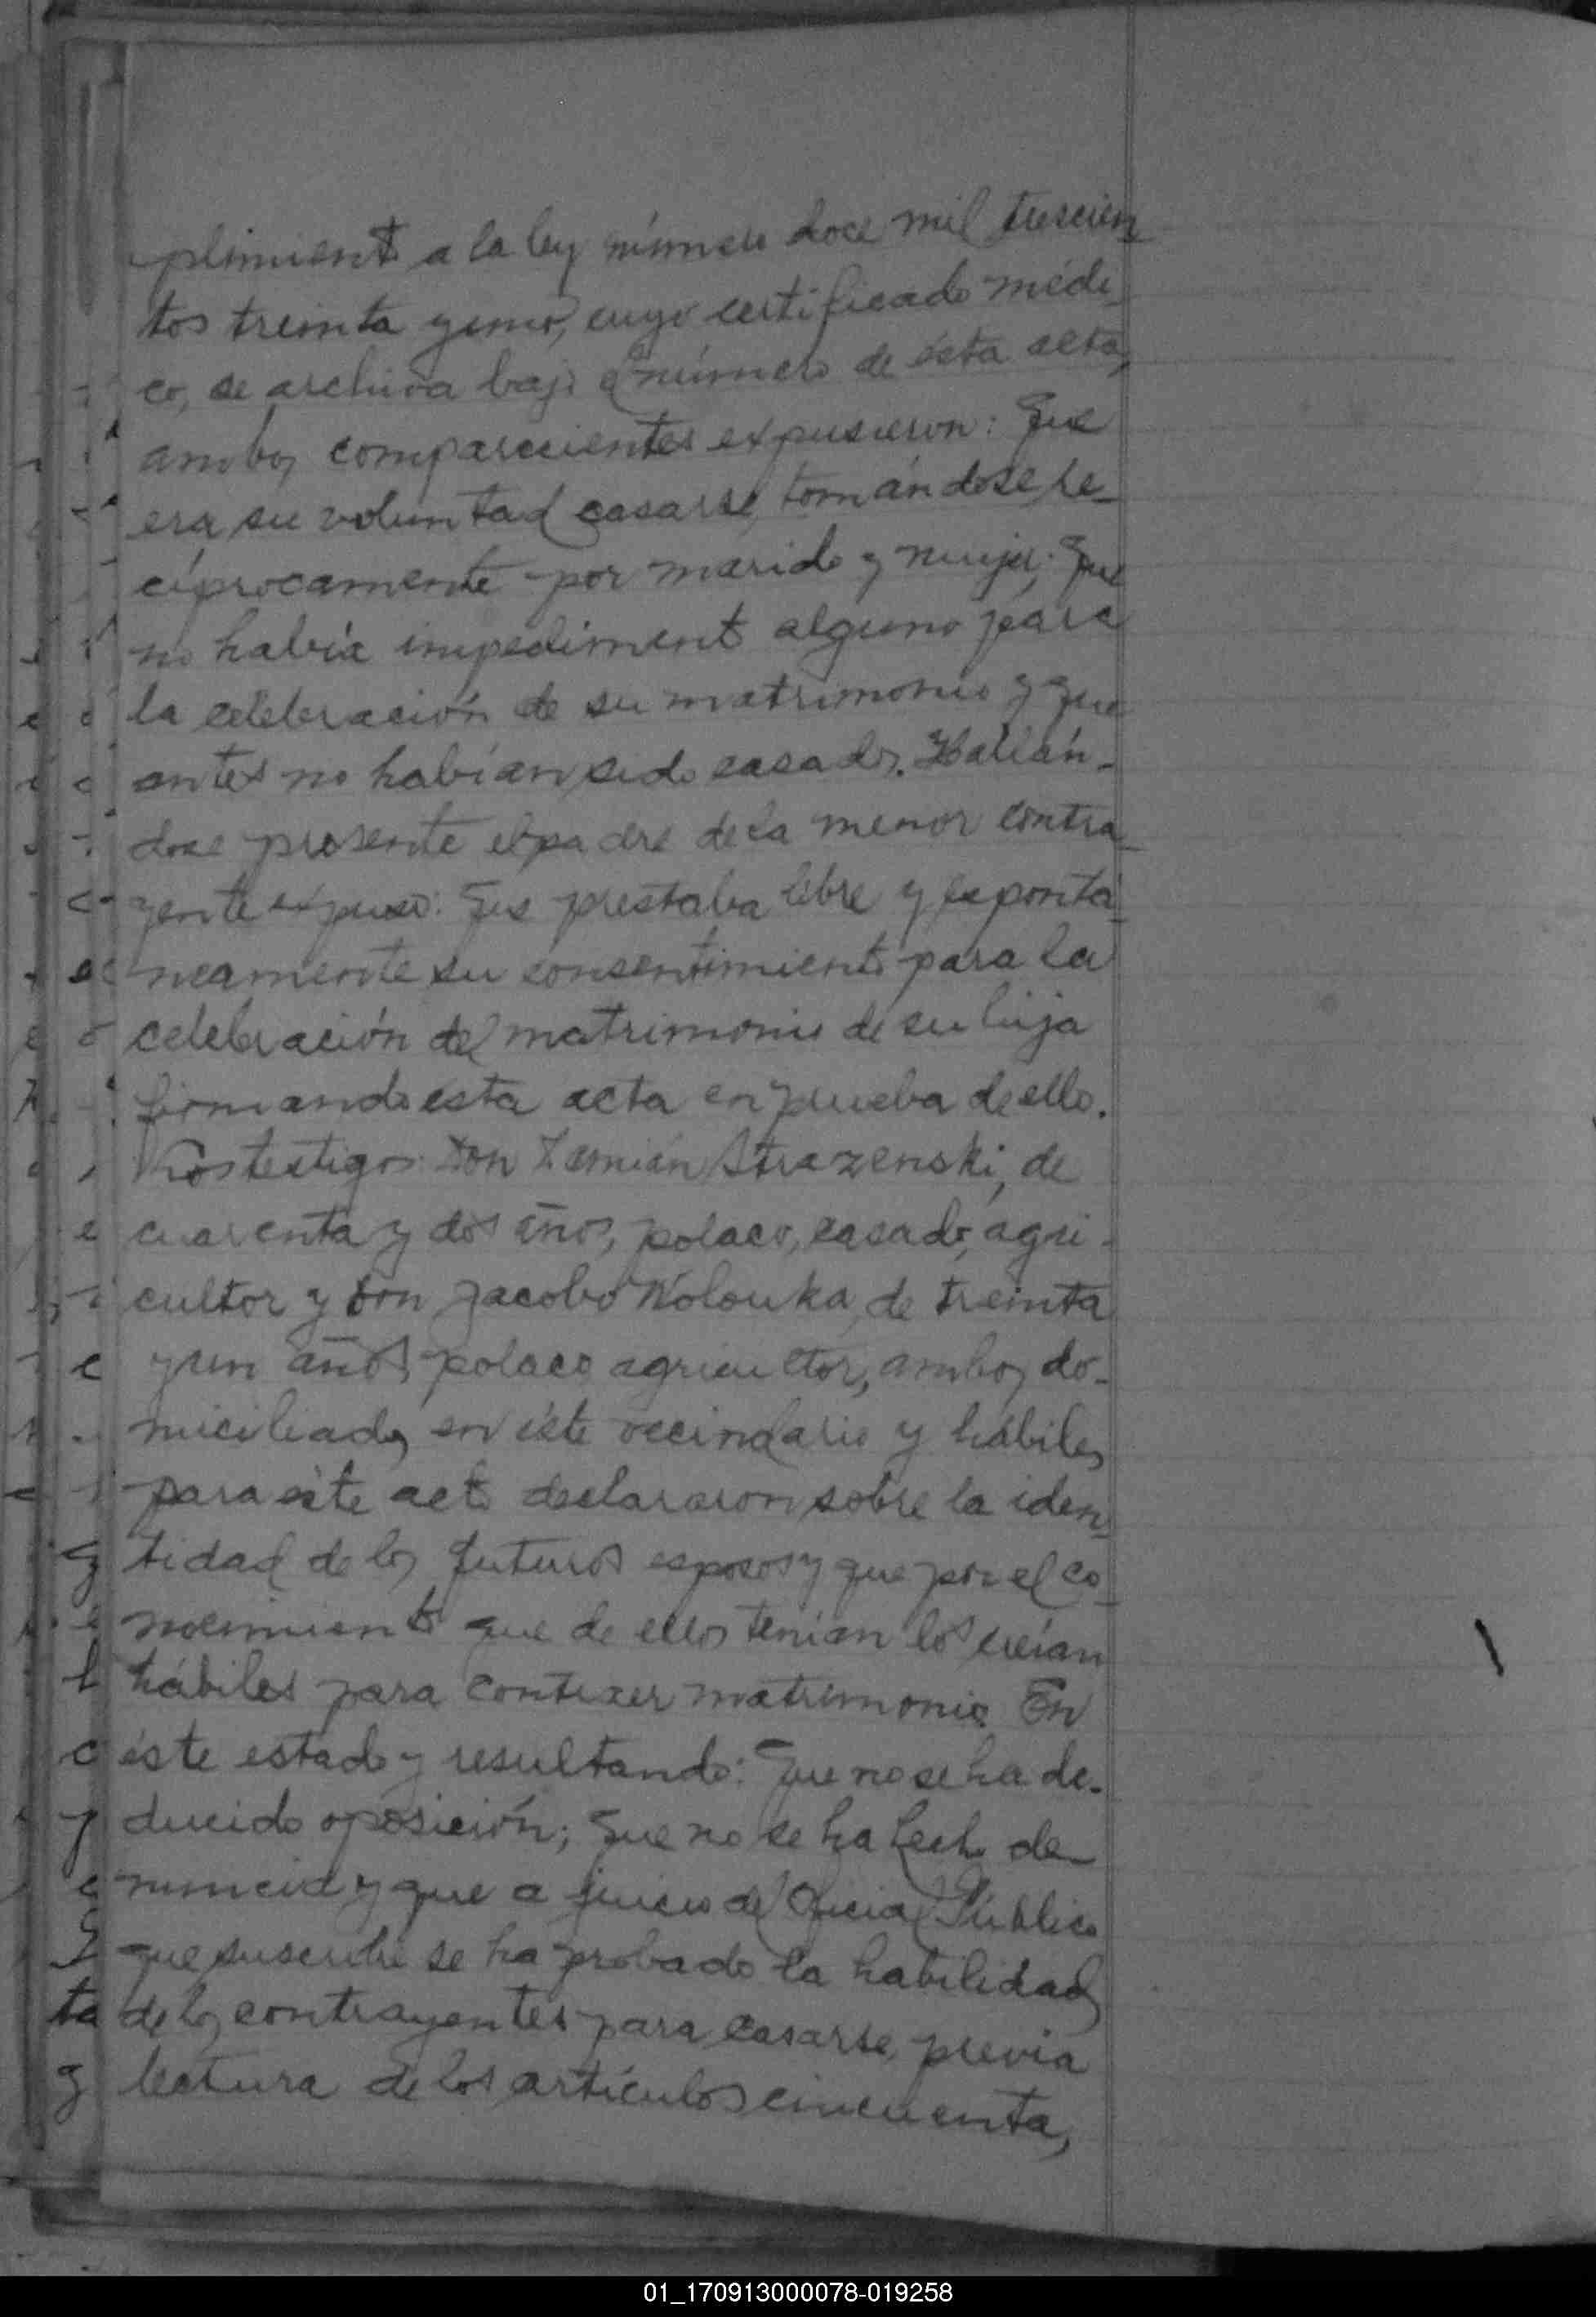 plimiento a la ley número doce mil trescien
tos treinta y uno, cuyo certificado médi
co, se archiva bajo el número de ésta acta,
ambos comparecientes expusieron: Que
era su voluntad casarse, tomándose re_
cíprocamente por marido y mujer; Que
no había impedimento alguno para
la celebración de su matrimonio y que
antes no habían sido casados. Hallán-
dose presente el padre de la menor contra_
yente expuso: Que prestaba libre y espontá_
neamente su consentimiento para la
celebración del matrimonio de su hija
firmando ésta acta en prueba de ello.
Los testigos: Don Strazenski, de
cuarenta y dos años, polaco, casado, agri-
cultor y Don Jacobo Wolouka, de treinta
y un años, polaco agricultor, ambos do-
miciliados en éste vecindario y hábiles
para éste acto declararon sobre la iden_
tidad de los futuros esposos y que por el co_
nocimiento que de ellos tenían los creían
hábiles para contraer matrimonio. En
éste estado y resultando: Que no se ha de-
ducido oposición; Que no se ha hecho de_
nuncia y que a juicio del Oficial Público
que suscribe se ha probado la habilidad
de los contrayentes para casarse, previa
lectura de los artículos cincuenta,
01_170913000078-019258